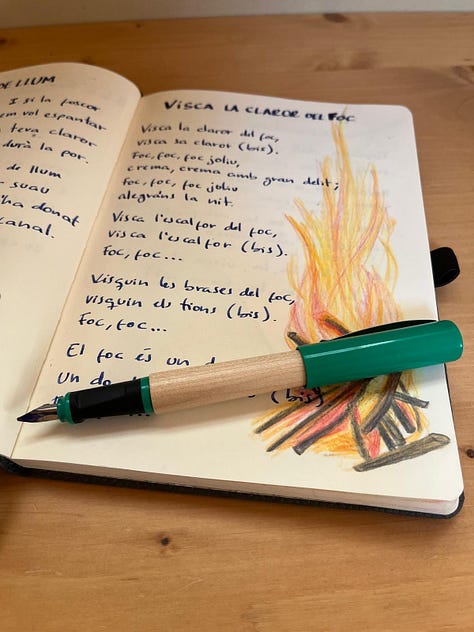 DE LLUM
I si la foscor
em vol espantar
teva claror
durà la por.
de llum
suau
ha donat
canal.
VISCA LA CLAROR DEL FOC
Visca la claror del foc,
visca sa claror (bis).
Foc, foc, foc joliu,
crema, crema amb gran delit;
foc, foc, foc joliu
alegra'ns la nit.
Visca l'escalfor del foc,
visca l'escalfor (bis).
Foc, foc...
Visquin les brases del foc,
visquin els tions (bis).
Foc, foc...
El foc és un d
Un do
(bis)